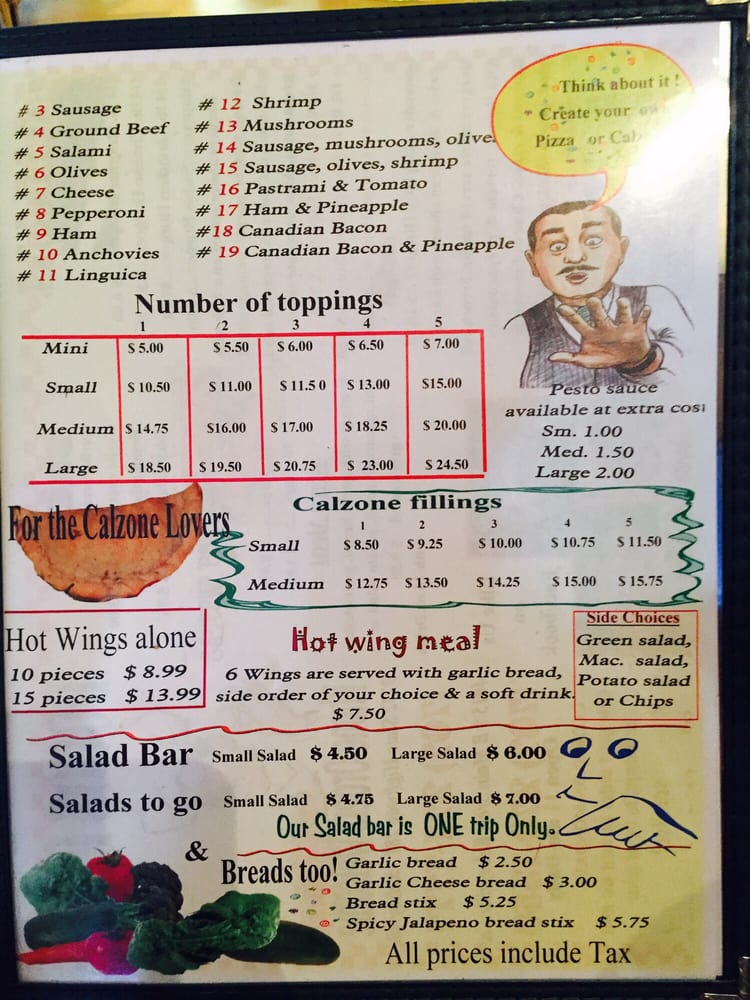 Think about it !
Create your
Pizza or
# 3 Sausage
# 4 Ground Beef
# 5 Salami
# 6 Olives
# 7 Cheese
# 8 Pepperoni
# 9 Ham
# 10 Anchovies
# 11 Linguica
# 12 Shrimp
# 13 Mushrooms
# 14 Sausage, mushrooms,
# 15 Sausage, olives, shrimp
# 16 Pastrami & Tomato
# 17 Ham & Pineapple
#18 Canadian Bacon
# 19 Canadian Bacon & Pineapple
Number of toppings
1 2 3 4 5
Mini $ 5.00 $ 5.50 $ 6.00 $ 6.50 $ 7.00
Small $ 10.50 $ 11.00 $ 11.5 0 $ 13.00 $15.00
Medium $ 14.75 $16.00 $ 17.00 $ 18.25 $ 20.00
Large $ 18.50 $ 19.50 $ 20.75 $ 23.00 $ 24.50
Pesto sauce
available at extra cost
Sm. 1.00
Med. 1.50
Large 2.00
For the Calzone Lovers
Calzone fillings
1 2 3 4 5
Small $ 8.50 $ 9.25 $ 10.00 $ 10.75 $ 11.50
Medium $ 12.75 $ 13.50 $ 14.25 $ 15.00 $ 15.75
Hot Wings alone
10 pieces $ 8.99
15 pieces $ 13.99
Hot wing meal
6 Wings are served with garlic bread,
side order of your choice & a soft drink.
$ 7.50
Side Choices
Green salad,
Mac. salad,
Potato salad
or Chips
Salad Bar Small Salad $ 4.50 Large Salad $ 6.00
Salads to go Small Salad $ 4.75 Large Salad $ 7.00
Our Salad bar is ONE trip Only.
&
Breads too!
Garlic bread $ 2.50
Garlic Cheese bread $ 3.00
Bread stix $ 5.25
Spicy Jalapeno bread stix $ 5.75
All prices include Tax